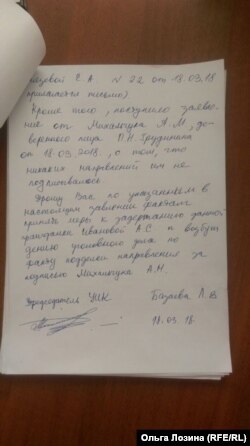 Е. А. № 22 от 18.03.18
(прилагается письмо)
Кроме того, поступило заявле-
ние от Михальчука А.М., до-
веренного лица П.Н. Грудинина
от 18.03.2018, о том, что
никаких направлений им не
подписывалось
Прошу Вас по указанным в
настоящем заявлении фактам
принять меры к задержанию данной
гражданки Ивановой А.С. и возбуж-
дению уголовного дела по
факту подделки направления за
подписью Михальчука А.М.
Председатель УИК
18.03.18.
Ольга Лозина (RFE/RL)